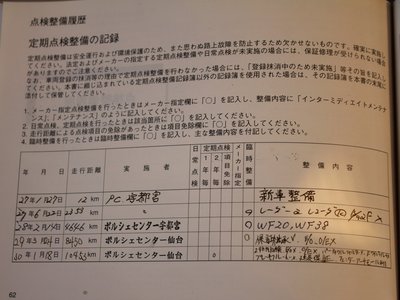 点検整備履歴
定期点検整備の記録
定期点検整備は安全運行および環境保護のため、また思わぬ路上故障を防止するため欠かせないものです。確実に実施し
てください。法定およびメーカーの指定する定期点検整備や日常点検が未実施の場合には、保証修理が受けられない場合
がありますのでご注意ください。
なお、車両登録の抹消等の理由で定期点検整備を行わなかった場合には、「登録抹消中のため未実施」等その旨を記入し
てください。本書に綴じ込まれている定期点検整備記録簿以外の記録簿を使用された場合は、その記録簿を本書の末尾に
添付して保管してください。
1. メーカー指定点検整備を行ったときはメーカー指定欄に「○」を記入し、整備内容に「インターミディエイトメンテナ
ンス」、「メンテナンス」のように記入してください。
2. 日常点検、定期点検を行ったときは該当箇所に「○」を記入してください。
3. 走行距離による点検項目の免除があったときは項目免除欄に「○」を記入してください。
4. 臨時整備を行ったときは臨時整備欄に「○」を記入し、主な整備内容を付記してください。
年 月 日 走行距離 実施者 日常点検 定期点検 1年毎 2年毎 項目免除 メーカー指定 臨時整備 整備内容
27年1月27日 12km P.C.宇都宮 新車整備
27年6月22日 〃
28年2月14日 4646 ポルシェセンター宇都宮 ○ WF20, WF38
29年3月4日 8450 ポルシェセンター仙台
30年1月18日 10953km ポルシェセンター仙台
62